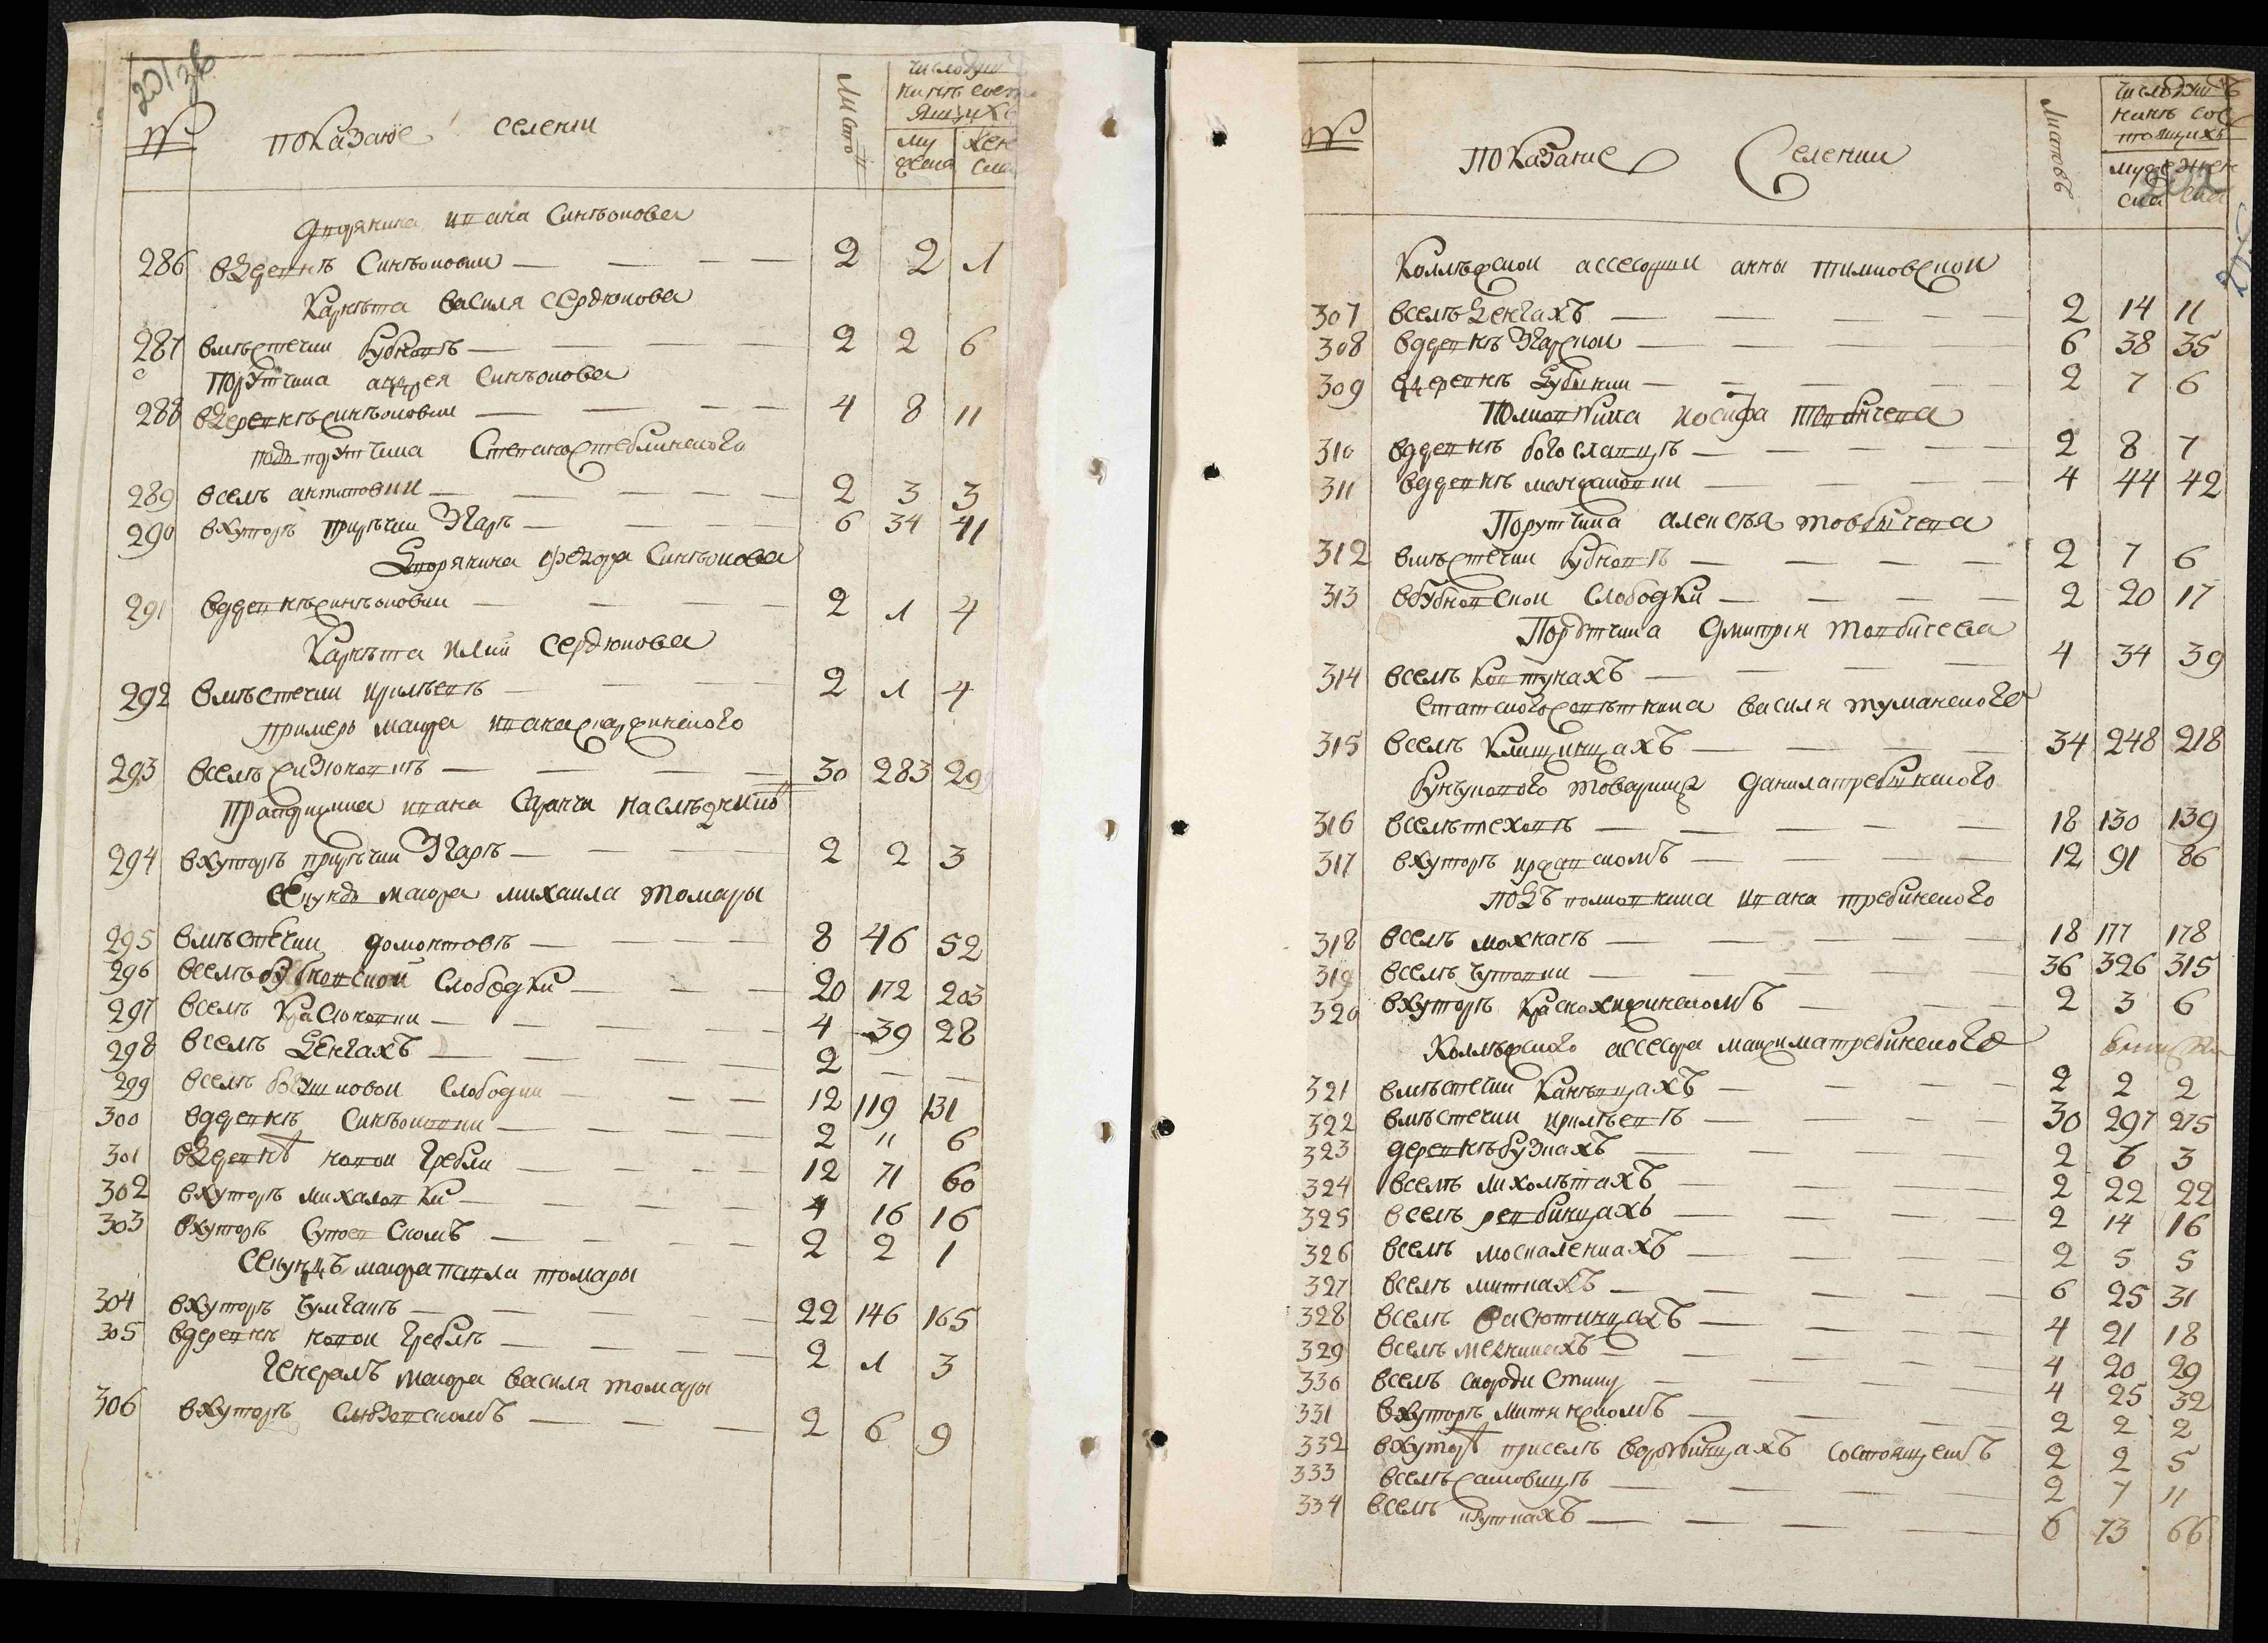 201 зв
№ показание селении Листовъ
число душъ
в нихъ состо
ящихъ
му жска
жен ска
дворянина ивана Синѣокова
286 вдеревнѣ Синѣоковки — 2 2 1
Корнѣта василя сердюкова
287 вмѣстечки бубновѣ — 2 2 6
порутчика андрея Синѣокова
288 вдеревнѣ синѣоковки — 4 8 11
подпорутчика Степана стеблинского
289 вселѣ антиповки — 2 3 3
290 вхуторѣ прирѣчки Згарѣ — 6 34 41
Дворянина федора Синѣокова
291 вдеревнѣ синѣоковки — 2 1 4
Корнѣта илии сердюкова
292 вмѣстечки ирклѣевѣ — 2 1 4
примеръ маиора ивана
293 вселѣ — 30 283 29
ивана наслѣдников
294 вхуторѣ прирѣчки Згарѣ — 2 2 3
секундъ маиора михаила томары
295 вмѣстечки домонтовѣ — 8 46 52
296 вселѣ бубновской слободки — 20 172 203
297 вселѣ Красюковки — 4 39 28
298 вселѣ Денгахъ — 2 — —
299 вселѣ слободки — 12 119 131
300 вдеревнѣ Синѣоковки — 2 11 6
301 вдеревнѣ новои гребли — 12 71 60
302 вхуторѣ михаловки — 4 16 16
303 вхуторѣ Супоевскомъ — 2 2 1
секундъ маиора павла томары
304 вхуторѣ чумгакѣ — 22 146 165
305 вдеревнѣ новои греблѣ — 2 1 3
генералъ маиора василя томары
306 вхуторѣ — 2 6 9
№ показание Селении Листовъ
число душъ
внихъ сос
тоящихъ
мужеска женска
202
Коллѣжскои ассесорши анны
307 вселѣ Денгахъ — 2 14 11
308 вдеревнѣ Згарскои — 6 38 35
309 вдеревнѣ — 2 7 6
Полковника иосифа товбичева
310 вдеревнѣ богославцѣ — 2 8 7
311 вдеревнѣ — 4 44 42
Порутчика алексѣя товбичева
312 вмѣстечки бубновѣ — 2 7 6
313 вбубновскои слободки — 2 20 17
Порутчика дмитрия товбичева
314 вселѣ ковтунахъ — 4 34 39
статского совѣтника василя туманского
315 вселѣ клищинцахъ — 34 248 218
бунчукового товарища данила требинского
316 вселѣ плеховѣ — 18 130 139
317 вхуторѣ — 12 91 86
подъ полковника ивана требинского
318 вселѣ мохначѣ — 18 177 178
319 вселѣ чутовки — 36 326 315
320 вхуторѣ — 2 3 6
Коллѣжского ассесора максима требинского
321 вмѣстечки канѣвцахъ — 2 2 2
322 вмѣстечки ирклѣевѣ — 30 297 275
323 деревнѣ бузкахъ — 2 6 3
324 вселѣ михолѣтахъ — 2 22 22
325 вселѣ ревбинцахъ — 2 14 16
326 вселѣ москаленкахъ — 2 5 5
327 вселѣ миткахъ — 6 25 31
328 вселѣ васютинцахъ — 4 21 18
329 вселѣ мелникахъ — 4 20 29
330 вселѣ скородистику — 4 25 32
331 вхуторѣ — 2 2 2
332 вхуторѣ приселѣ воробинцахъ состоящемъ 2 2 5
333 вселѣ самовицѣ — 2 7 11
334 вселѣ — 6 73 66